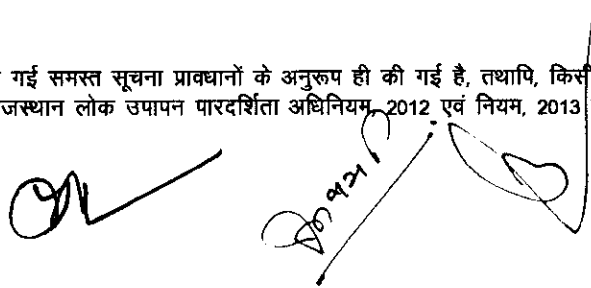 गई समस्त सूचना प्रावधानों के अनुरूप ही की गई है, तथापि, किसी
जस्थान लोक उपापन पारदर्शिता अधिनियम, 2012 एवं नियम, 2013